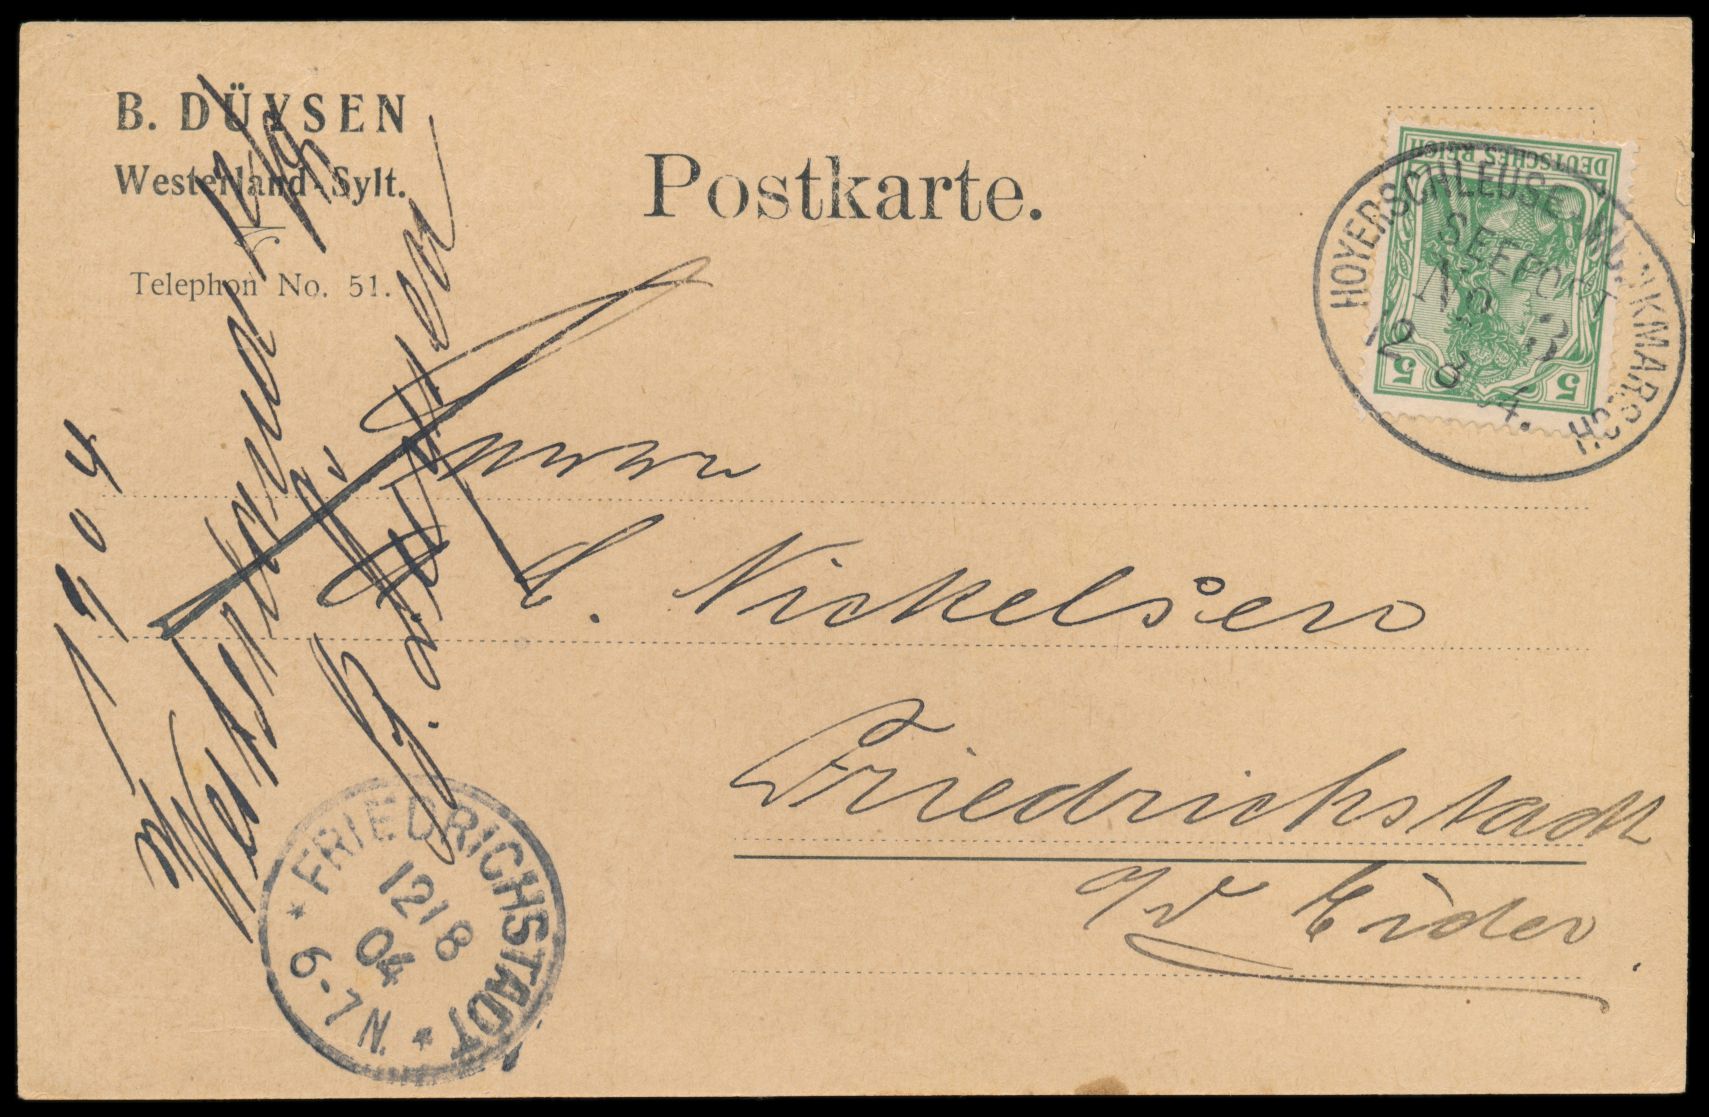 B. DÜYSEN
Westerland-Sylt.
Telephon No. 51.
Postkarte.
DEUTSCHES REICH
5 5
HOYERSCHLEUSE-MUNKMARSCH
SEEPOST
12 8 04.
C. Nickelsen
Friedrichstadt
a/d Eider
Westerland
1904
* FRIEDRICHSTADT *
12/8
04
6-7N.